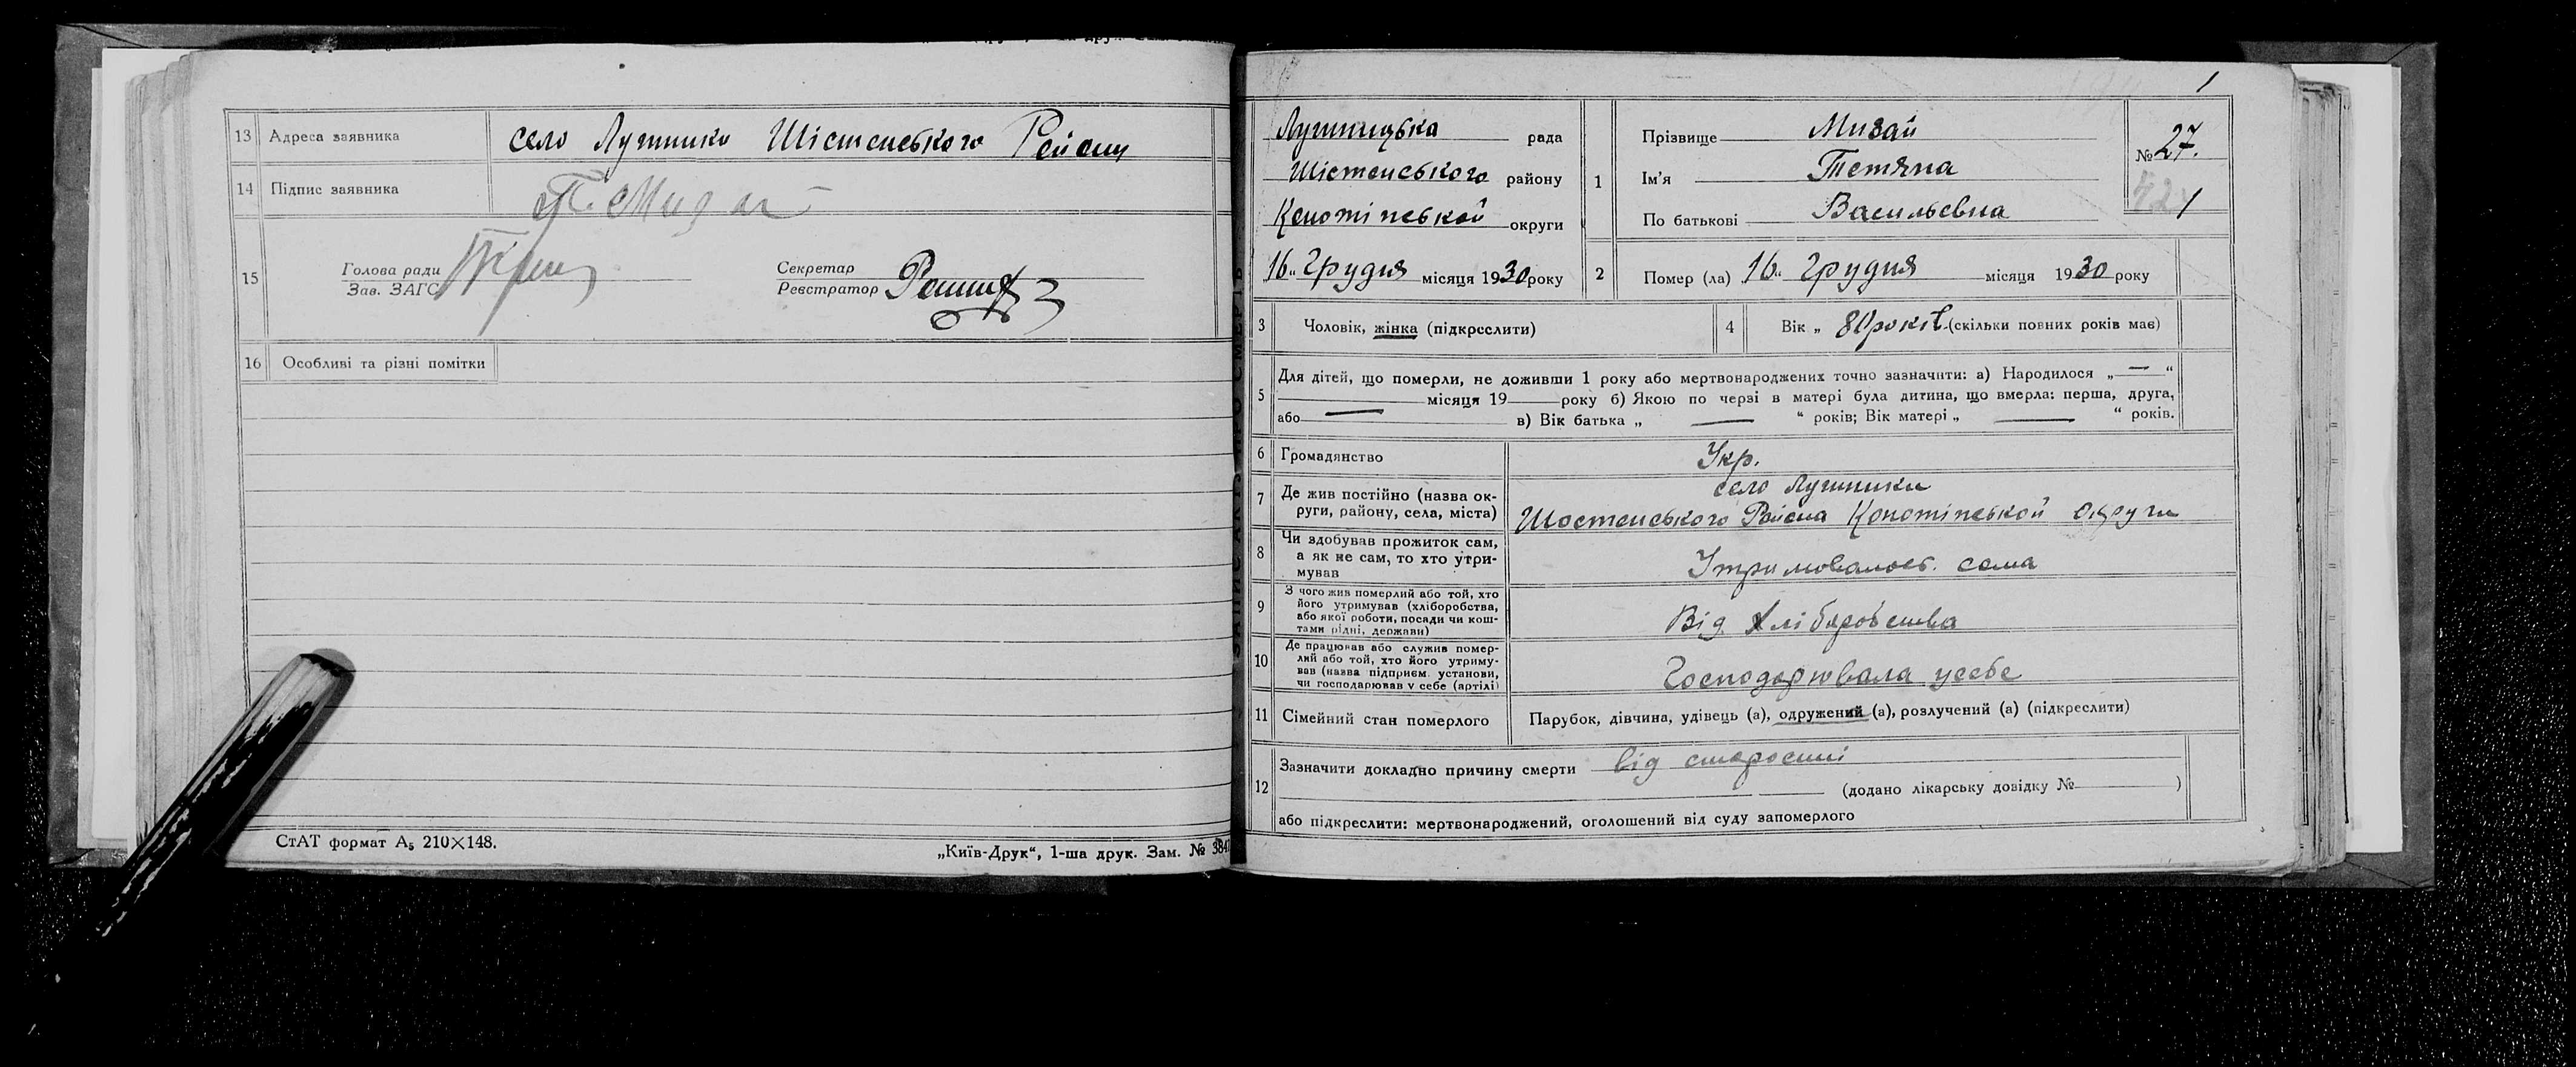 13 Адреса заявника село Лушники Шістенського Району
14 Підпис заявника Т. Мизай
15 Голова ради
Зав. ЗАГС
Секретар
Реєстратор
16 Особливі та різні помітки
СтАТ формат А₅ 210×148.
„Київ-Друк“, 1-ша друк. Зам. № 384
1
Лушницька рада
Шістенського району
Конотіпської округи
16„ Грудня місяця 1930 року
1 Прізвище Мизай
Ім'я Тетяна
По батькові Васильевна
№ 27.
1
2 Помер (ла) 16„ Грудня місяця 1930 року
3 Чоловік, жінка (підкреслити)
4 Вік „ 80 років (скільки повних років має)
5 Для дітей, що померли, не доживши 1 року або мертвонароджених точно зазначити: а) Народилося „ — “
місяця 19 року б) Якою по черзі в матері була дитина, що вмерла: перша, друга,
або — в) Вік батька „ — “ років; Вік матері „ — “ років.
6 Громадянство Укр.
7 Де жив постійно (назва ок-
руги, району, села, міста)
село Лушники
Шостенського Района Конотіпськой округи
8 Чи здобував прожиток сам,
а як не сам, то хто утри-
мував
Утримовалась сама
9 З чого жив померлий або той, хто
його утримував (хліборобства,
або якої роботи, посади чи кош-
тами рідні, держави)
Від хліборобства
10 Де працював або служив помер-
лий або той, хто його утриму-
вав (назва підприєм. установи,
чи господарював у себе (артілі)
Господарювала усебе
11 Сімейний стан померлого Парубок, дівчина, удівець (а), одружений (а), розлучений (а) (підкреслити)
12 Зазначити докладно причину смерти від старости
(додано лікарську довідку № )
або підкреслити: мертвонароджений, оголошений від суду запомерлого